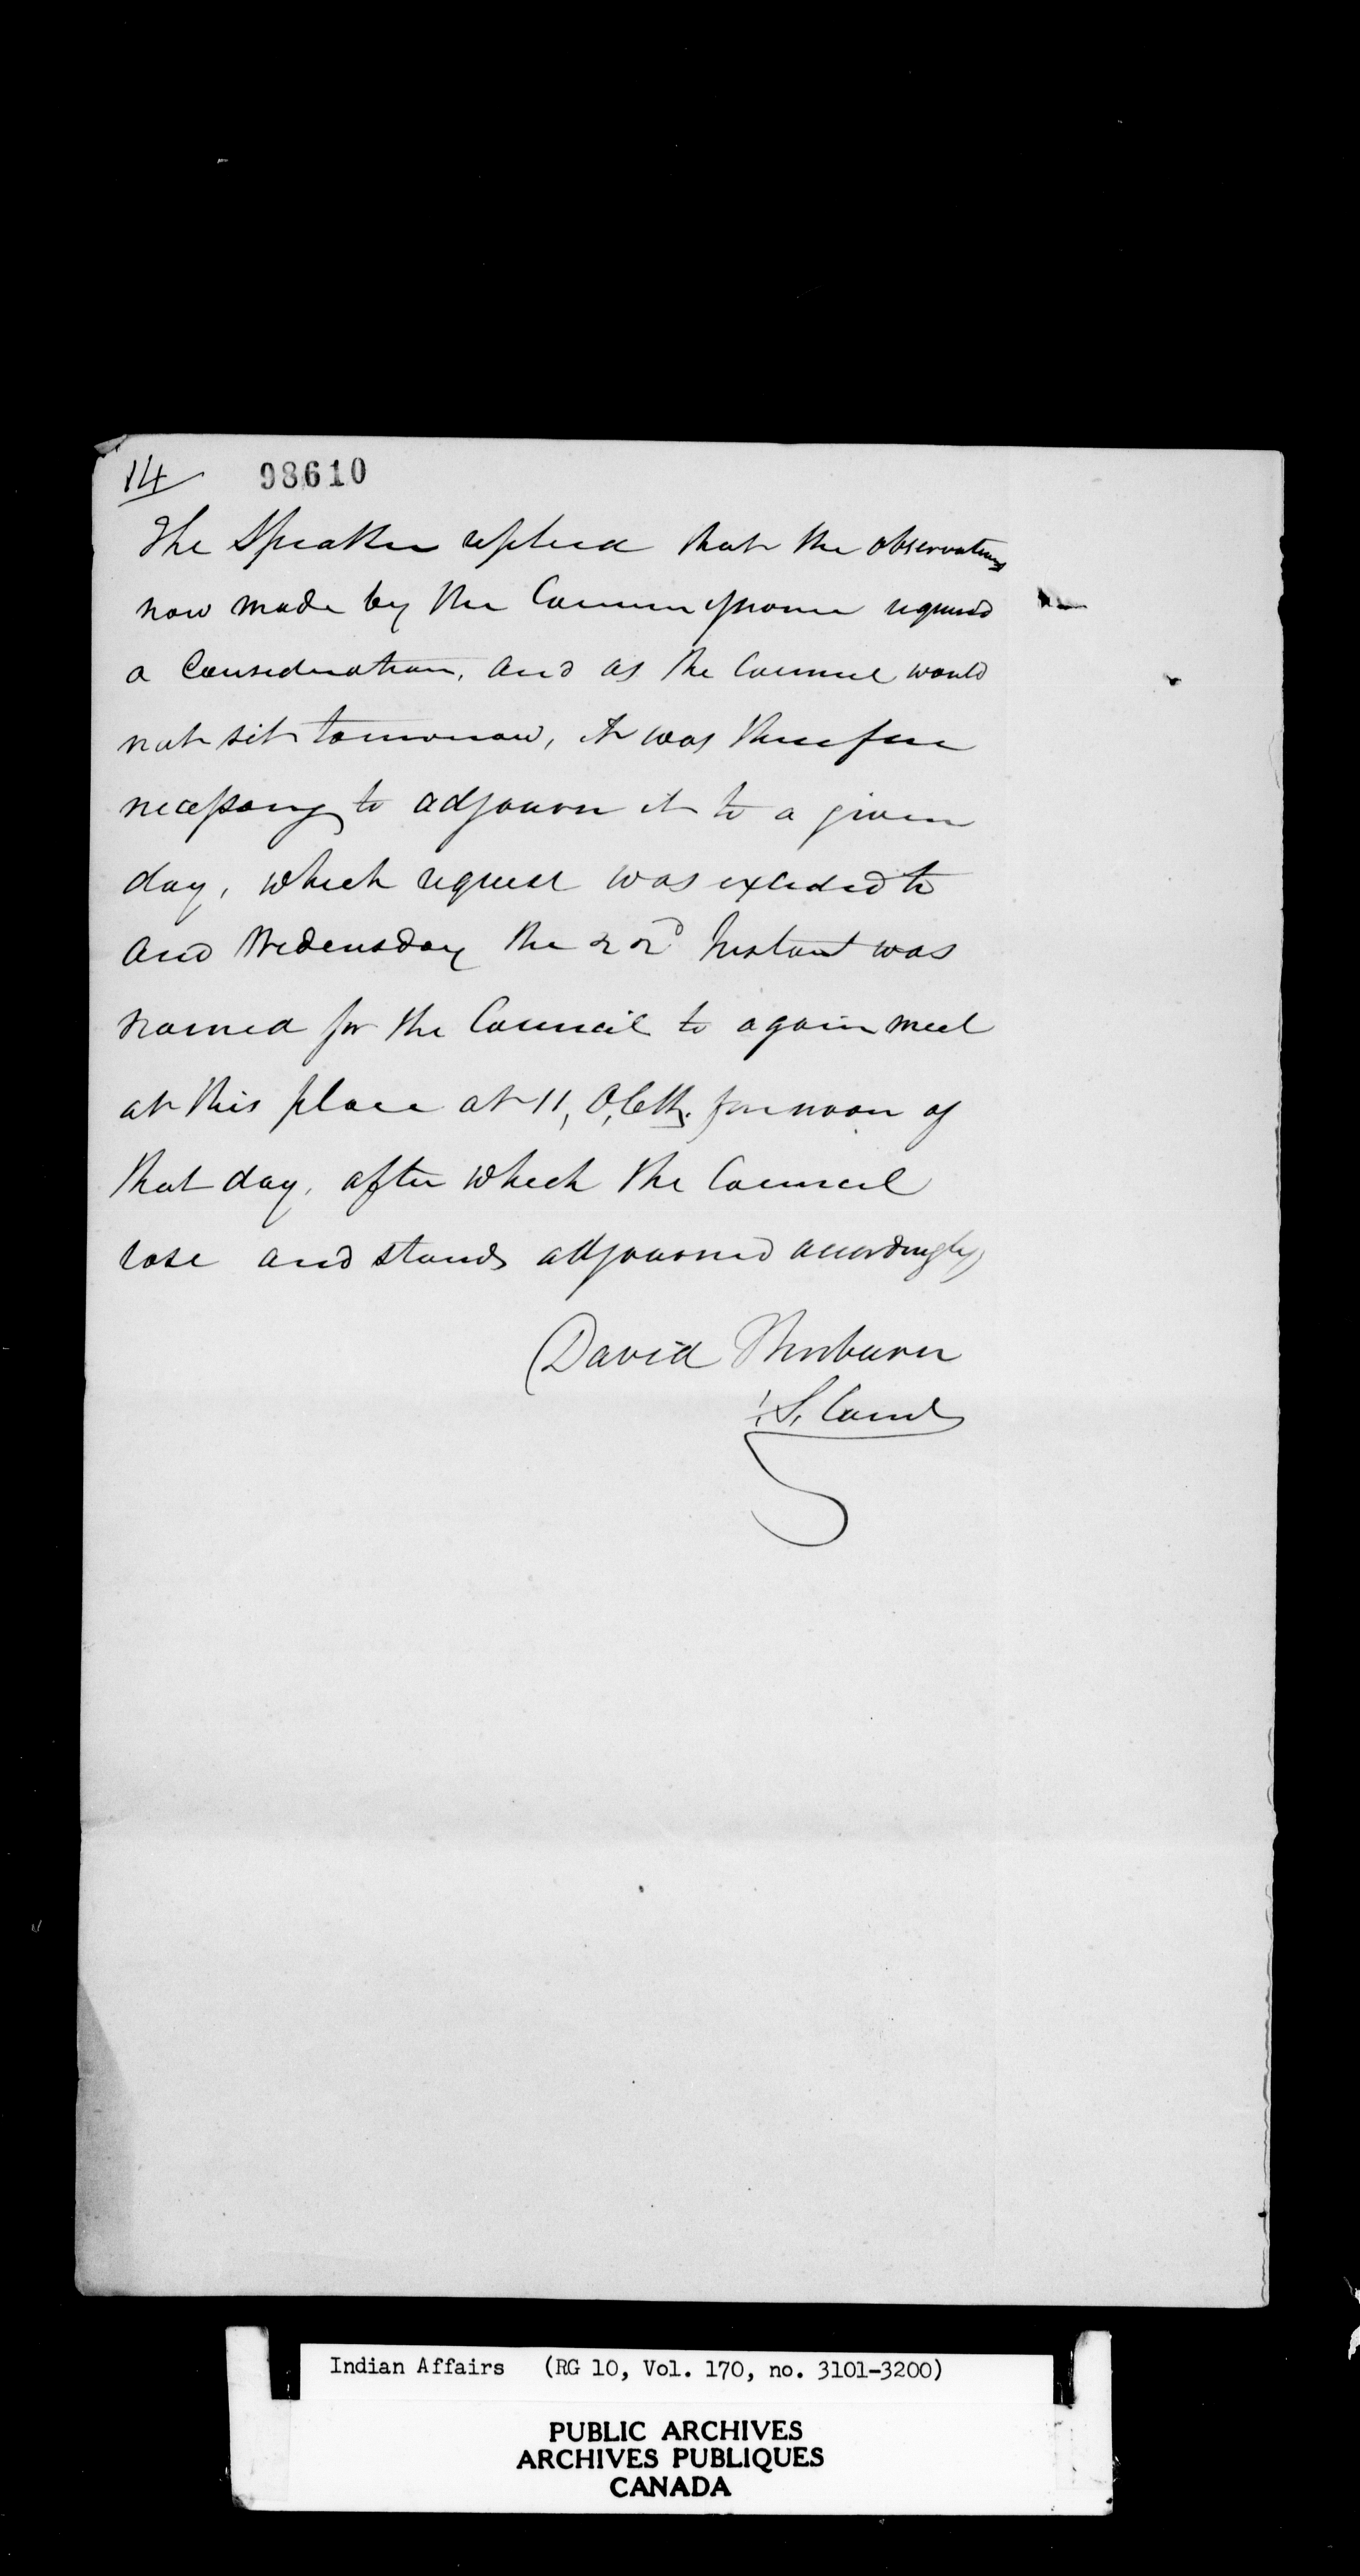 14 98610
The Speaker replied that the observations
now made by the Commissioner required
a Consideration, and as the Council would
not sit tomorrow, it was therefore
necessary to adjourn it to a given
day, which request was exceded to
and Wedensday the 22d Instant was
named for the Council to again meet
at this place at 11, O,Clk. forenoon of
that day, after which the Council
rose and stands adjourned accordingly
David Thorburn
S. Comr
Indian Affairs (RG 10, Vol. 170, no. 3101-3200)
PUBLIC ARCHIVES
ARCHIVES PUBLIQUES
CANADA